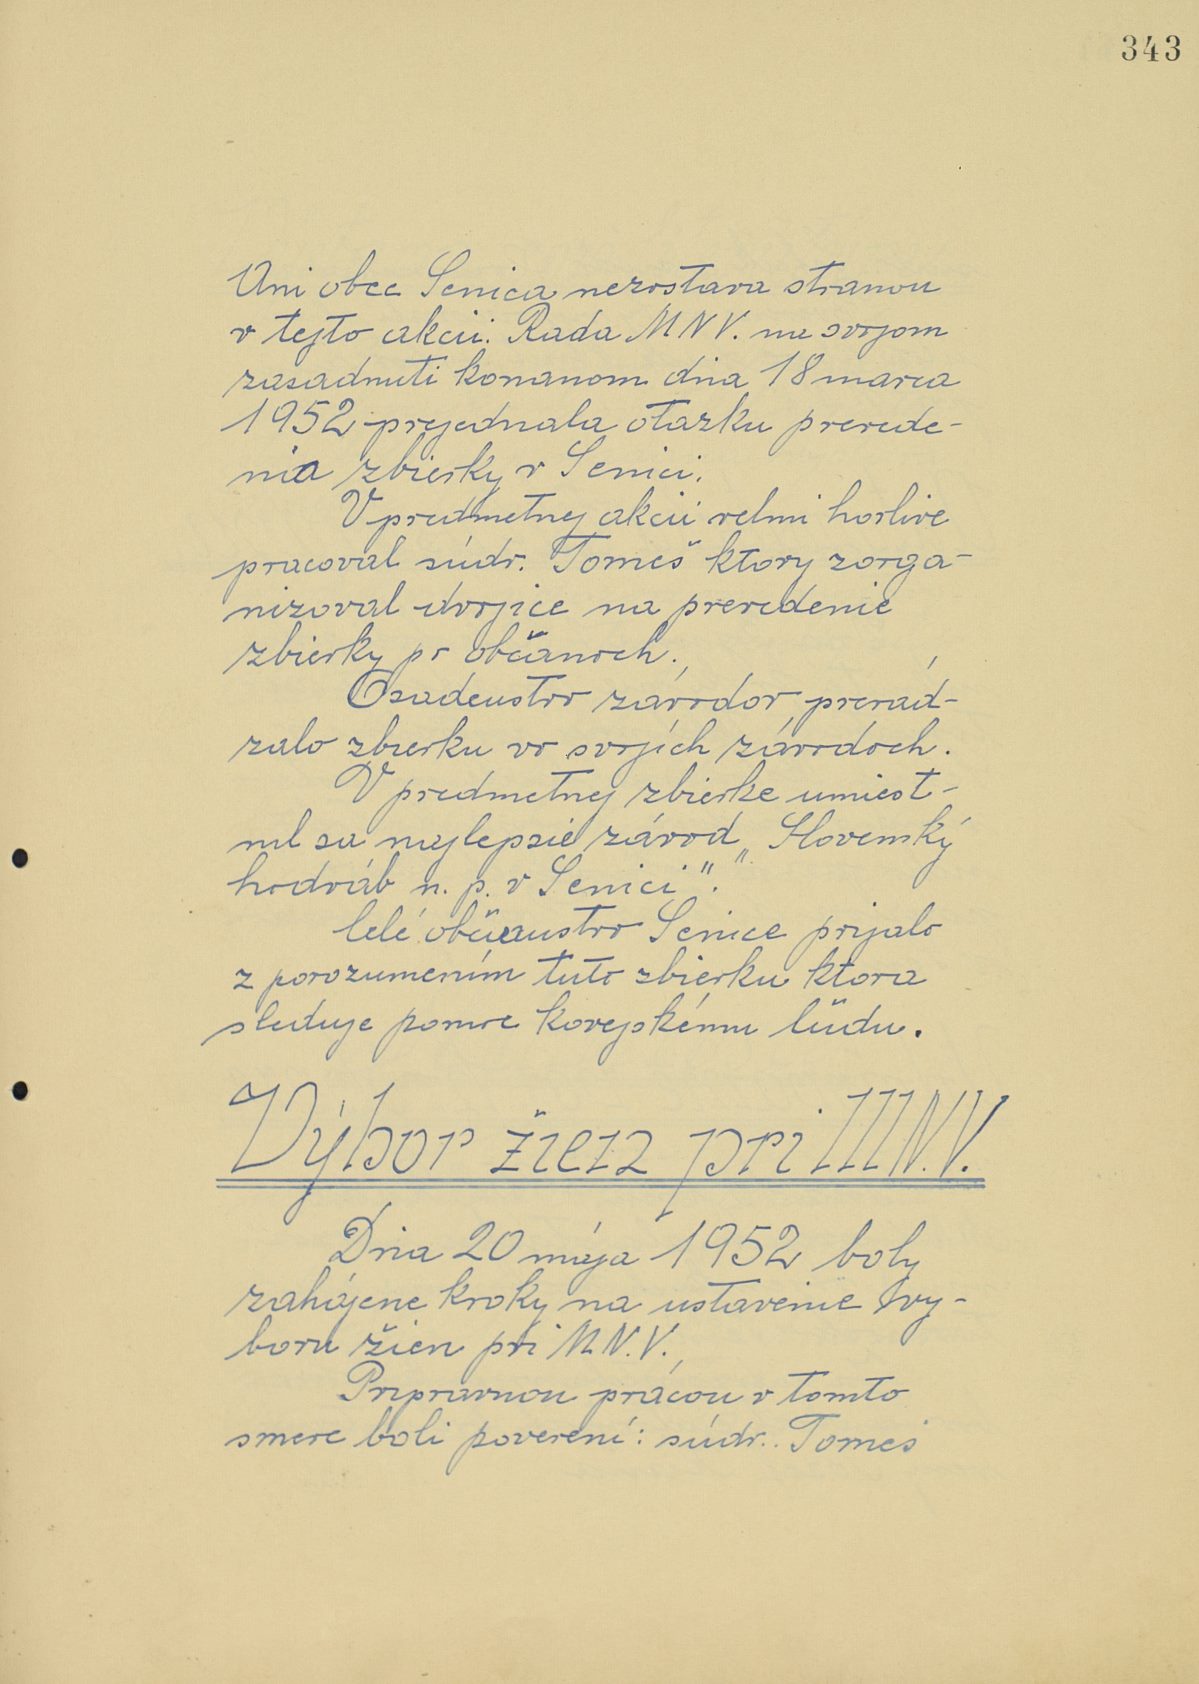 343
Ani obec Senica nezostava stranou
v tejto akcii. Rada M N V. na svojom
zasadnuti konanom dna 18 marca
1952 prejednala otazku prevede-
nia zbierky v Senici.
V predmetnej akcii velmi horlive
pracoval súdr. Tomeš ktory zorga-
nizoval dvojice na prevedenie
zbierky po občanoch.
Osadenstvo závodov prevád-
zalo zbierku vo svojích závodoch.
V predmetnej zbierke umiest-
nil sa najlepsie závod „Slovenský
hodváb n. p. v Senici".
Celé občanstvo Senice prijalo
z porozumením tuto zbierku ktora
sleduje pomoc korejskému lüdu.
Výbor žien pri M.N.V.
Dna 20 mája 1952 boly
zahájene kroky na ustavenie Vy-
boru žien pri M.N.V.
Pripravnou prácou v tomto
smere boli poverení: súdr. Tomeš